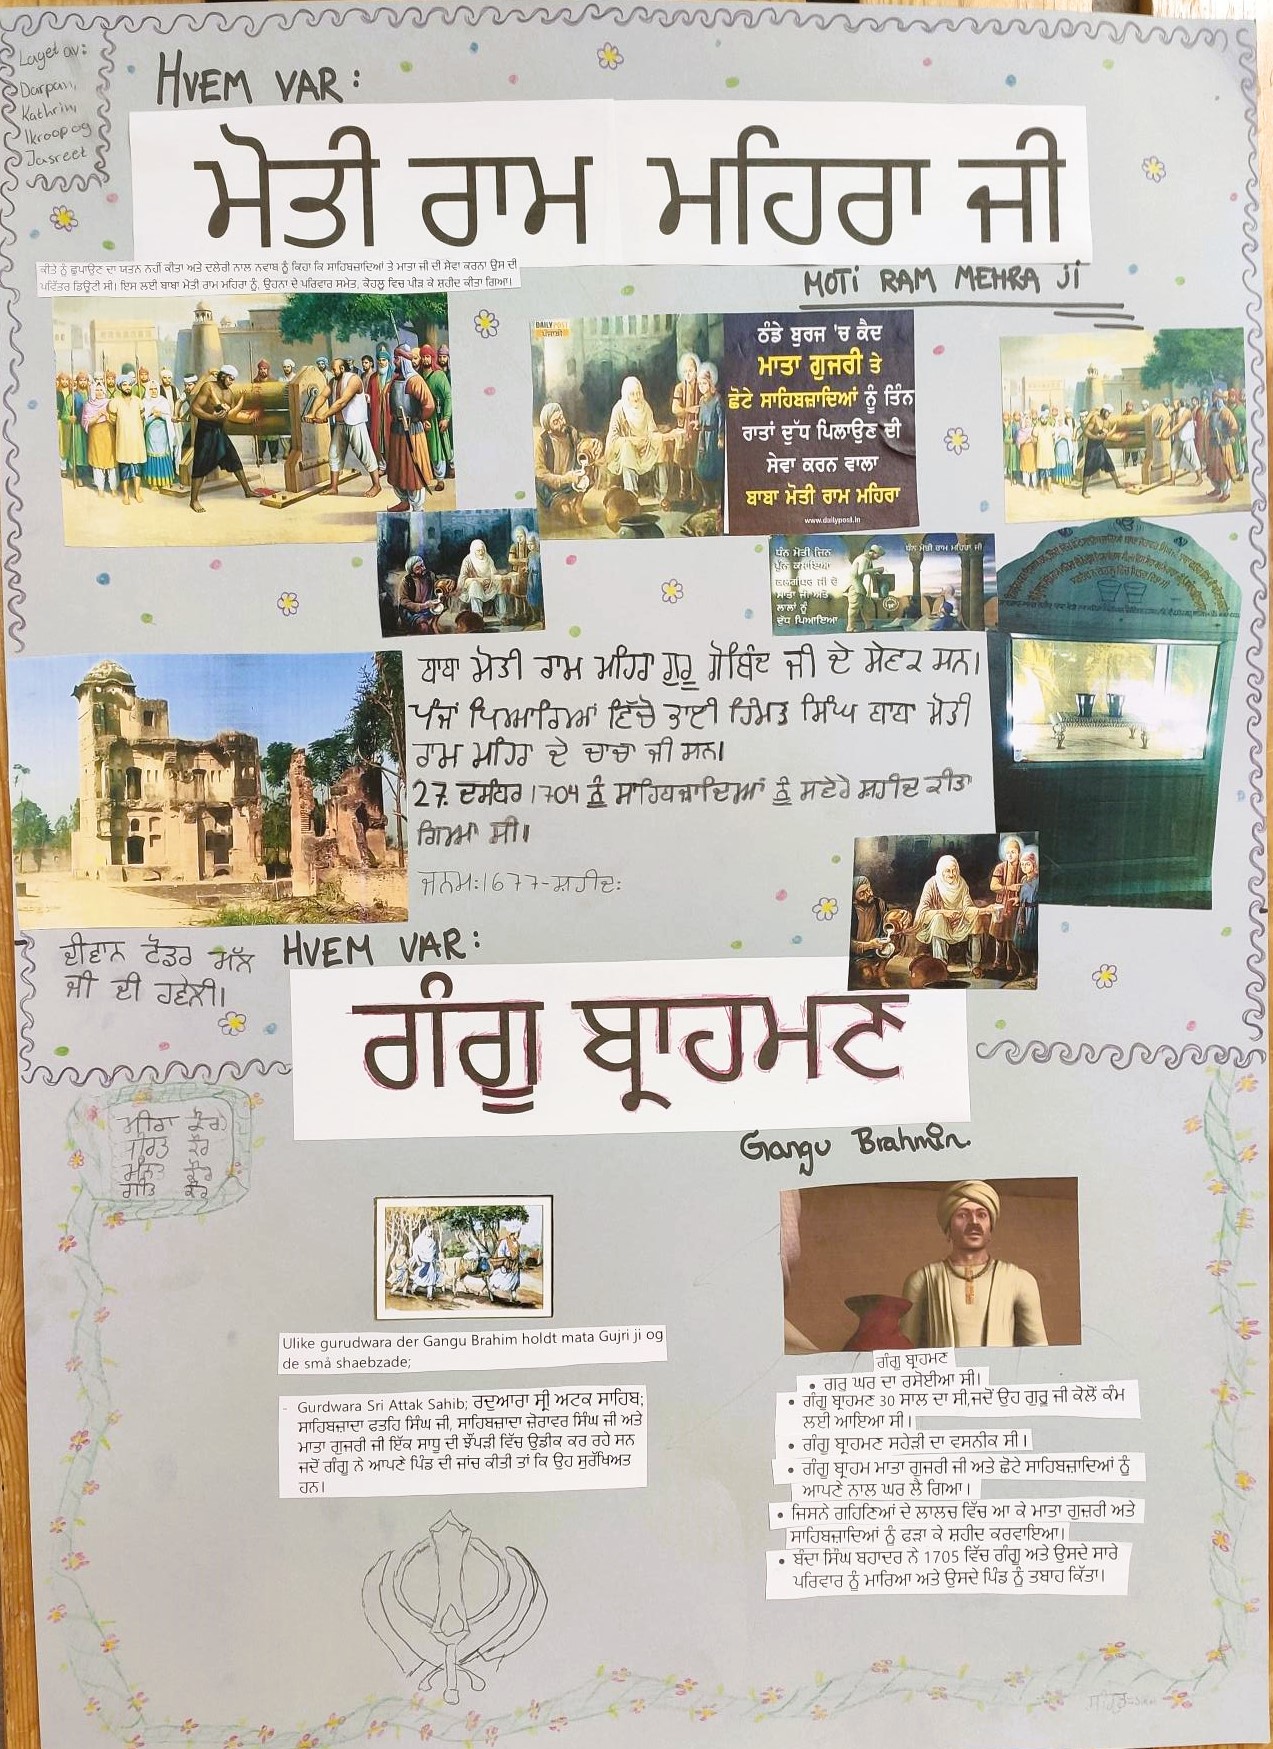 Laget av:
Darpan,
Kathrin,
Ikroop og
Jasreet
HVEM VAR:
ਮੋਤੀ ਰਾਮ ਮਹਿਰਾ ਜੀ
MOTI RAM MEHRA Ji
ਕੀਤੇ ਨੂੰ ਛੁਪਾਉਣ ਦਾ ਯਤਨ ਨਹੀਂ ਕੀਤਾ ਅਤੇ ਦਲੇਰੀ ਨਾਲ ਨਵਾਬ ਨੂੰ ਕਿਹਾ ਕਿ ਸਾਹਿਬਜ਼ਾਦਿਆਂ ਤੇ ਮਾਤਾ ਜੀ ਦੀ ਸੇਵਾ ਕਰਨਾ ਉਸ ਦੀ
ਪਵਿੱਤਰ ਡਿਊਟੀ ਸੀ। ਇਸ ਲਈ ਬਾਬਾ ਮੋਤੀ ਰਾਮ ਮਹਿਰਾ ਨੂੰ, ਉਹਨਾ ਦੇ ਪਰਿਵਾਰ ਸਮੇਤ, ਕੋਹਲੂ ਵਿਚ ਪੀੜ ਕੇ ਸ਼ਹੀਦ ਕੀਤਾ ਗਿਆ।
DAILY POST
ਪੰਜਾਬੀ
ਠੰਡੇ ਬੁਰਜ 'ਚ ਕੈਦ
ਮਾਤਾ ਗੁਜਰੀ ਤੇ
ਛੋਟੇ ਸਾਹਿਬਜ਼ਾਦਿਆਂ ਨੂੰ ਤਿੰਨ
ਰਾਤਾਂ ਦੁੱਧ ਪਿਲਾਉਣ ਦੀ
ਸੇਵਾ ਕਰਨ ਵਾਲਾ
ਬਾਬਾ ਮੋਤੀ ਰਾਮ ਮਹਿਰਾ
www.dailypost.in
ਧੰਨ ਮੋਤੀ ਜਿਨ
ਪੁੰਨ ਕਮਾਇਆ
ਕਲਗੀਧਰ ਜੀ ਦੇ
ਮਾਤਾ ਜੀ ਅਤੇ
ਲਾਲਾਂ ਨੂੰ
ਦੁੱਧ ਪਿਆਇਆ
ਧੰਨ ਮੋਤੀ ਰਾਮ ਮਹਿਰਾ ਜੀ
ਬਾਬਾ ਮੋਤੀ ਰਾਮ ਮਹਿਰਾ ਗੁਰੂ ਗੋਬਿੰਦ ਜੀ ਦੇ ਸੇਵਕ ਸਨ।
ਪੰਜਾਂ ਪਿਆਰਿਆਂ ਵਿੱਚੋ ਭਾਈ ਹਿੰਮਤ ਸਿੰਘ ਬਾਬਾ ਮੋਤੀ
ਰਾਮ ਮਹਿਰਾ ਦੇ ਚਾਚਾ ਜੀ ਸਨ।
27. ਦਸੰਬਰ 1704 ਨੂੰ ਸਾਹਿਬਜ਼ਾਦਿਆਂ ਨੂੰ ਸਵੇਰੇ ਸ਼ਹੀਦ ਕੀਤਾ
ਗਿਆ ਸੀ।
ਜਨਮ:1677-ਸ਼ਹੀਦ:
ਦੀਵਾਨ ਟੋਡਰ ਮੱਲ
ਜੀ ਦੀ ਹਵੇਲੀ।
HVEM VAR:
ਗੰਗੂ ਬ੍ਰਾਹਮਣ
Gangu Brahmin
ਮੀਰਾ ਕੌਰ
ਕੌਰ
ਮੰਨਤ ਕੌਰ
ਗੀਤ ਕੌਰ
Ulike gurudwara der Gangu Brahim holdt mata Gujri ji og
de små shaebzade;
- Gurdwara Sri Attak Sahib; ਰਦੁਆਰਾ ਸ੍ਰੀ ਅਟਕ ਸਾਹਿਬ;
ਸਾਹਿਬਜ਼ਾਦਾ ਫਤਹਿ ਸਿੰਘ ਜੀ, ਸਾਹਿਬਜ਼ਾਦਾ ਜ਼ੋਰਾਵਰ ਸਿੰਘ ਜੀ ਅਤੇ
ਮਾਤਾ ਗੁਜਰੀ ਜੀ ਇੱਕ ਸਾਧੂ ਦੀ ਝੌਂਪੜੀ ਵਿੱਚ ਉਡੀਕ ਕਰ ਰਹੇ ਸਨ
ਜਦੋਂ ਗੰਗੂ ਨੇ ਆਪਣੇ ਪਿੰਡ ਦੀ ਜਾਂਚ ਕੀਤੀ ਤਾਂ ਕਿ ਉਹ ਸੁਰੱਖਿਅਤ
ਹਨ।
ਗੰਗੂ ਬ੍ਰਾਹਮਣ
• ਗਰੁ ਘਰ ਦਾ ਰਸੋਈਆ ਸੀ।
• ਗੰਗੂ ਬ੍ਰਾਹਮਣ 30 ਸਾਲ ਦਾ ਸੀ,ਜਦੋਂ ਉਹ ਗੁਰੂ ਜੀ ਕੋਲੋਂ ਕੰਮ
ਲਈ ਆਇਆ ਸੀ।
• ਗੰਗੂ ਬ੍ਰਾਹਮਣ ਸਹੇੜੀ ਦਾ ਵਸਨੀਕ ਸੀ।
• ਗੰਗੂ ਬ੍ਰਾਹਮ ਮਾਤਾ ਗੁਜਰੀ ਜੀ ਅਤੇ ਛੋਟੇ ਸਾਹਿਬਜ਼ਾਦਿਆਂ ਨੂੰ
ਆਪਣੇ ਨਾਲ ਘਰ ਲੈ ਗਿਆ।
• ਜਿਸਨੇ ਗਹਿਣਿਆਂ ਦੇ ਲਾਲਚ ਵਿੱਚ ਆ ਕੇ ਮਾਤਾ ਗੁਜ਼ਰੀ ਅਤੇ
ਸਾਹਿਬਜ਼ਾਦਿਆਂ ਨੂੰ ਫੜਾ ਕੇ ਸ਼ਹੀਦ ਕਰਵਾਇਆ।
• ਬੰਦਾ ਸਿੰਘ ਬਹਾਦਰ ਨੇ 1705 ਵਿੱਚ ਗੰਗੂ ਅਤੇ ਉਸਦੇ ਸਾਰੇ
ਪਰਿਵਾਰ ਨੂੰ ਮਾਰਿਆ ਅਤੇ ਉਸਦੇ ਪਿੰਡ ਨੂੰ ਤਬਾਹ ਕਿੱਤਾ।